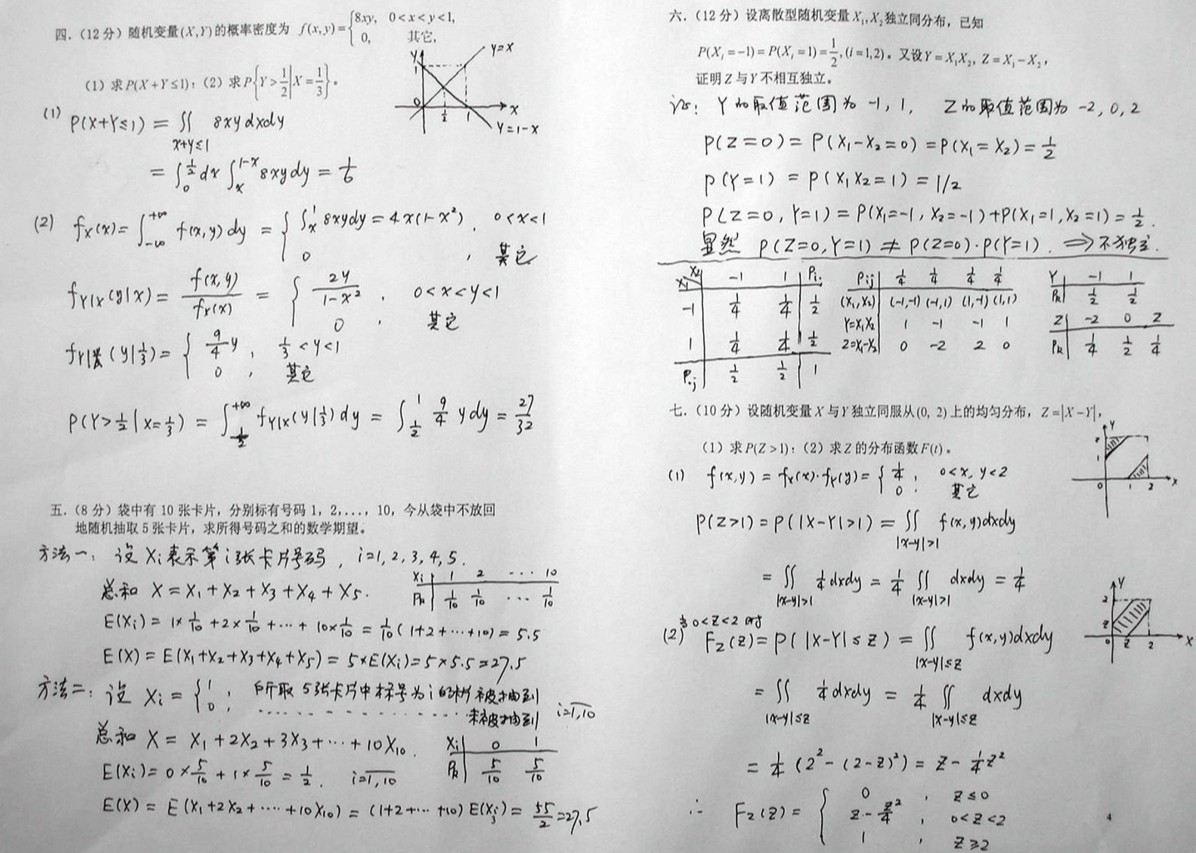 四.（12 分）随机变量(X,Y)的概率密度为 f(x,y)={8xy, 0<x<y<1,
0, 其它,
(1) 求P(X+Y≤1)；(2) 求P{Y>1/2|X=1/3}。
y
y=x
1
0
1/2
1
x
Y=1-x
(1) P(X+Y≤1) = ∬ 8xy dxdy
x+y≤1
= ∫_0^{1/2} dx ∫_x^{1-x} 8xy dy = 1/6
(2) f_X(x) = ∫_{-∞}^{+∞} f(x,y) dy = { ∫_x^1 8xy dy = 4x(1-x²), 0<x<1
0 , 其它
f_{Y|X}(y|x) = f(x,y)/f_X(x) = { 2y/(1-x²), 0<x<y<1
0, 其它
f_{Y|X}(y|1/3) = { 9/4 y, 1/3<y<1
0, 其它
P(Y>1/2|X=1/3) = ∫_{1/2}^{+∞} f_{Y|X}(y|1/3) dy = ∫_{1/2}^1 9/4 y dy = 27/32
五.（8 分）袋中有 10 张卡片，分别标有号码 1，2,...，10，今从袋中不放回
地随机抽取 5 张卡片，求所得号码之和的数学期望。
方法一：设 Xi 表示第 i 张卡片号码, i=1,2,3,4,5.
总和 X = X1 + X2 + X3 + X4 + X5.
Xi | 1 2 ··· 10
Pk | 1/10 1/10 ··· 1/10
E(Xi) = 1×1/10 + 2×1/10 + ··· + 10×1/10 = 1/10(1+2+···+10) = 5.5
E(X) = E(X1+X2+X3+X4+X5) = 5×E(Xi) = 5×5.5 = 27.5
方法二：设 Xi = {1, 所取 5 张卡片中标号为 i 的 被抽到
0, ·············· 未被抽到 i=1,10
总和 X = X1 + 2X2 + 3X3 + ··· + 10X10.
Xi | 0 1
Pk | 5/10 5/10
E(Xi) = 0×5/10 + 1×5/10 = 1/2. i=1,10
E(X) = E(X1+2X2+····+10X10) = (1+2+···+10) E(Xi) = 55/2 = 27.5
六.（12 分）设离散型随机变量X1,X2独立同分布，已知
P(Xi=-1) = P(Xi=1) = 1/2, (i=1,2)。又设Y=X1X2, Z=X1-X2,
证明Z与Y不相互独立。
证：Y的取值范围为 -1, 1, Z的取值范围为 -2, 0, 2
P(Z=0) = P(X1-X2=0) = P(X1=X2) = 1/2
P(Y=1) = P(X1X2=1) = 1/2
P(Z=0, Y=1) = P(X1=-1, X2=-1) + P(X1=1, X2=1) = 1/2.
显然 P(Z=0, Y=1) ≠ P(Z=0)·P(Y=1). ⇒ 不独立.
X1\X2 | -1 1 | Pi.
-1 | 1/4 1/4 | 1/2
1 | 1/4 1/4 | 1/2
P.j | 1/2 1/2 | 1
Pij | 1/4 1/4 1/4 1/4
(X1,X2) | (-1,-1) (-1,1) (1,-1) (1,1)
Y=X1X2 1 -1 -1 1
Z=X1-X2 0 -2 2 0
Y | -1 1
Pk | 1/2 1/2
Z | -2 0 2
Pk | 1/4 1/2 1/4
七.（10 分）设随机变量 X 与 Y 独立同服从(0, 2) 上的均匀分布，Z=|X-Y|,
(1) 求 P(Z>1)；(2) 求 Z 的分布函数 F(t)。
Y
2
1
0
1
2
X
(1) f(x,y) = f_X(x)·f_Y(y) = { 1/4, 0<x, y<2
0, 其它
P(Z>1) = P(|X-Y|>1) = ∬ f(x,y) dxdy
|x-y|>1
= ∬ 1/4 dxdy = 1/4 ∬ dxdy = 1/4
|x-y|>1 |x-y|>1
当 0<Z<2 时
(2) F_Z(z) = P(|X-Y|≤z) = ∬ f(x,y) dxdy
|x-y|≤z
Y
2
z
0
z
2
X
= ∬ 1/4 dxdy = 1/4 ∬ dxdy
|x-y|≤z |x-y|≤z
= 1/4 (2² - (2-z)²) = z - 1/4 z²
∴ F_Z(z) = { 0, z≤0
z - z²/4, 0<z<2
1, z≥2
4